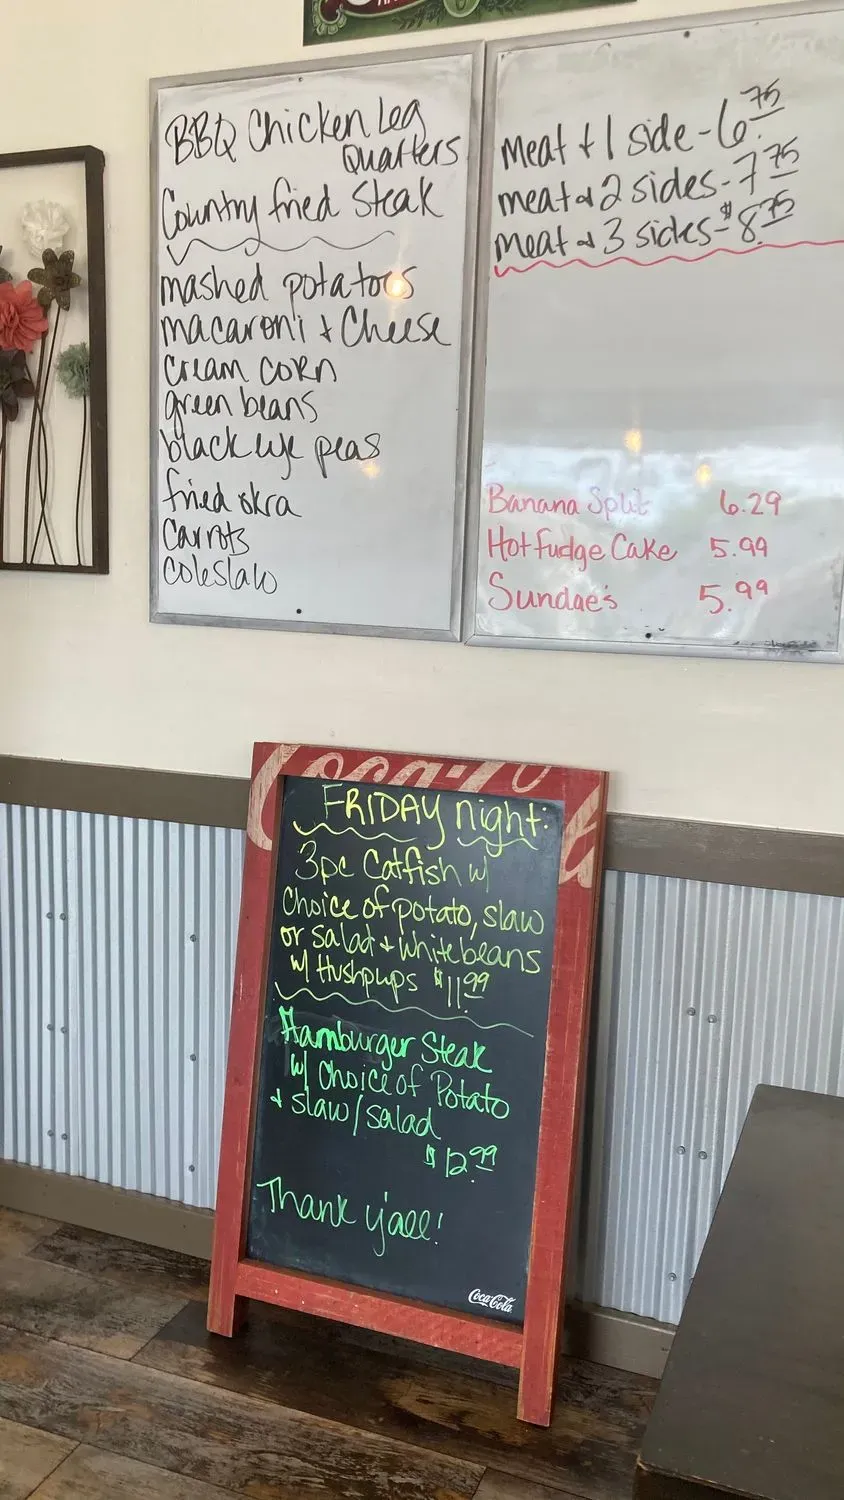 BBQ Chicken Leg
Quarters
Country fried Steak
mashed potatoes
macaroni & Cheese
cream corn
green beans
black eye peas
fried okra
carrots
coleslaw
meat & 1 side - 6.75
meat & 2 sides - 7.75
meat & 3 sides - $8.75
Banana Split 6.29
Hot Fudge Cake 5.99
Sundae's 5.99
Coca-Co
FRIDAY night:
3pc Catfish w/
Choice of potato, slaw
or salad & white beans
w/ Hushpups $11.99
Hamburger Steak
w/ Choice of Potato
& slaw/salad
$12.99
Thank y'all!
Coca-Cola